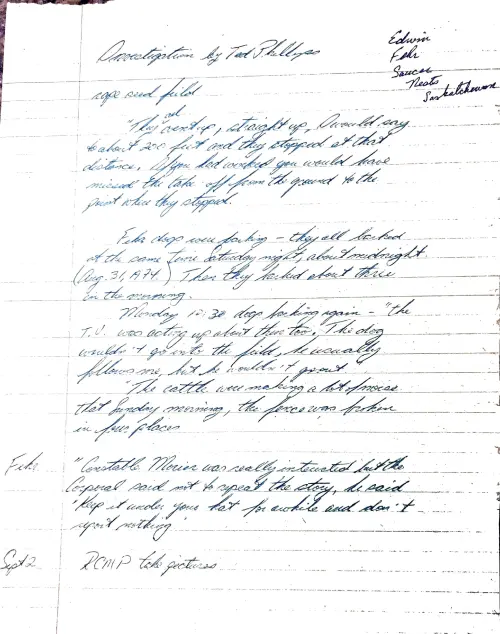 Investigation by Ted Phillips
Edwin
Fehr
Saucer
Nests
Saskatchewan
rape seed field
"They all went up, straight up, I would say
to about 200 feet and they stopped at that
distance. If you had winked you would have
missed the take off from the ground to the
point where they stopped.
Fehr dogs were barking - they all barked
at the same time Saturday night, about midnight
(Aug. 31, 1974.) Then they barked about three
in the morning.
Monday 12:30 dogs barking again - "the
T.V. was acting up about then too. The dog
wouldn't go into the field, he usually
follows me, but he wouldn't go out"
"The cattle were making a lot of noise
that Sunday morning, the fence was broken
in four places
Fehr "Constable Morier was really interested but the
Corporal said not to repeat the story, he said
'Keep it under your hat for awhile and don't
spoil nothing'
Sept 2 RCMP take pictures